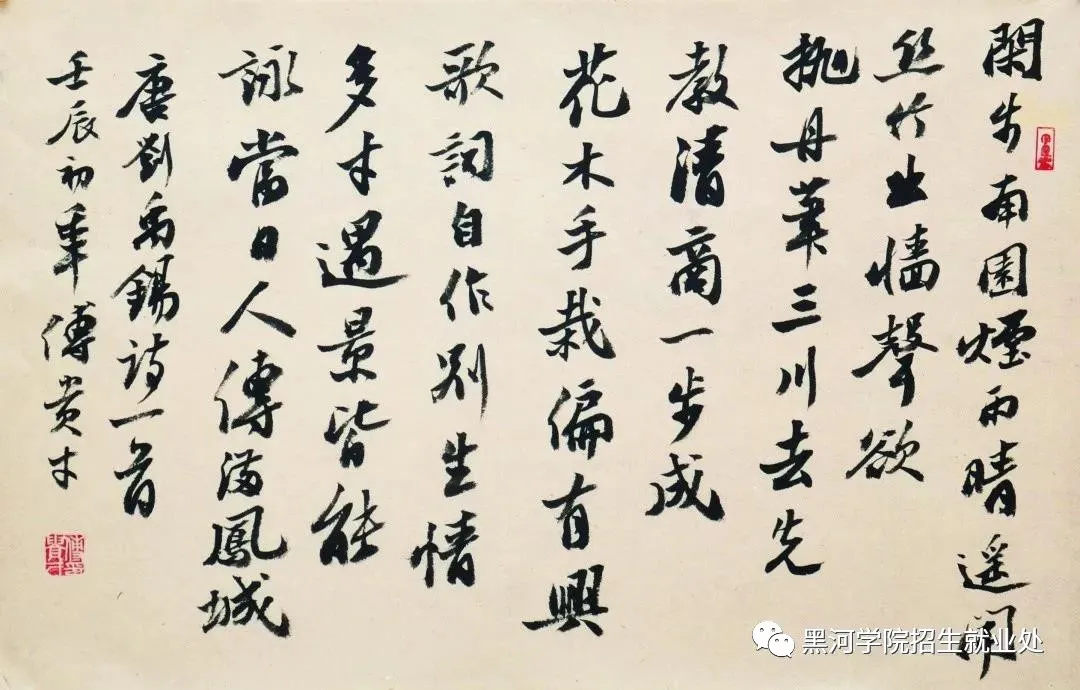 閑步南園煙雨晴遥聞
丝竹出墻聲欲
抛丹筆三川去先
教清商一步成
花木手栽偏有興
歌詞自作别生情
多才遇景皆能
詠當日人傳滿鳳城
唐劉禹錫詩一首
壬辰初 傅貴才
黑河学院招生就业处